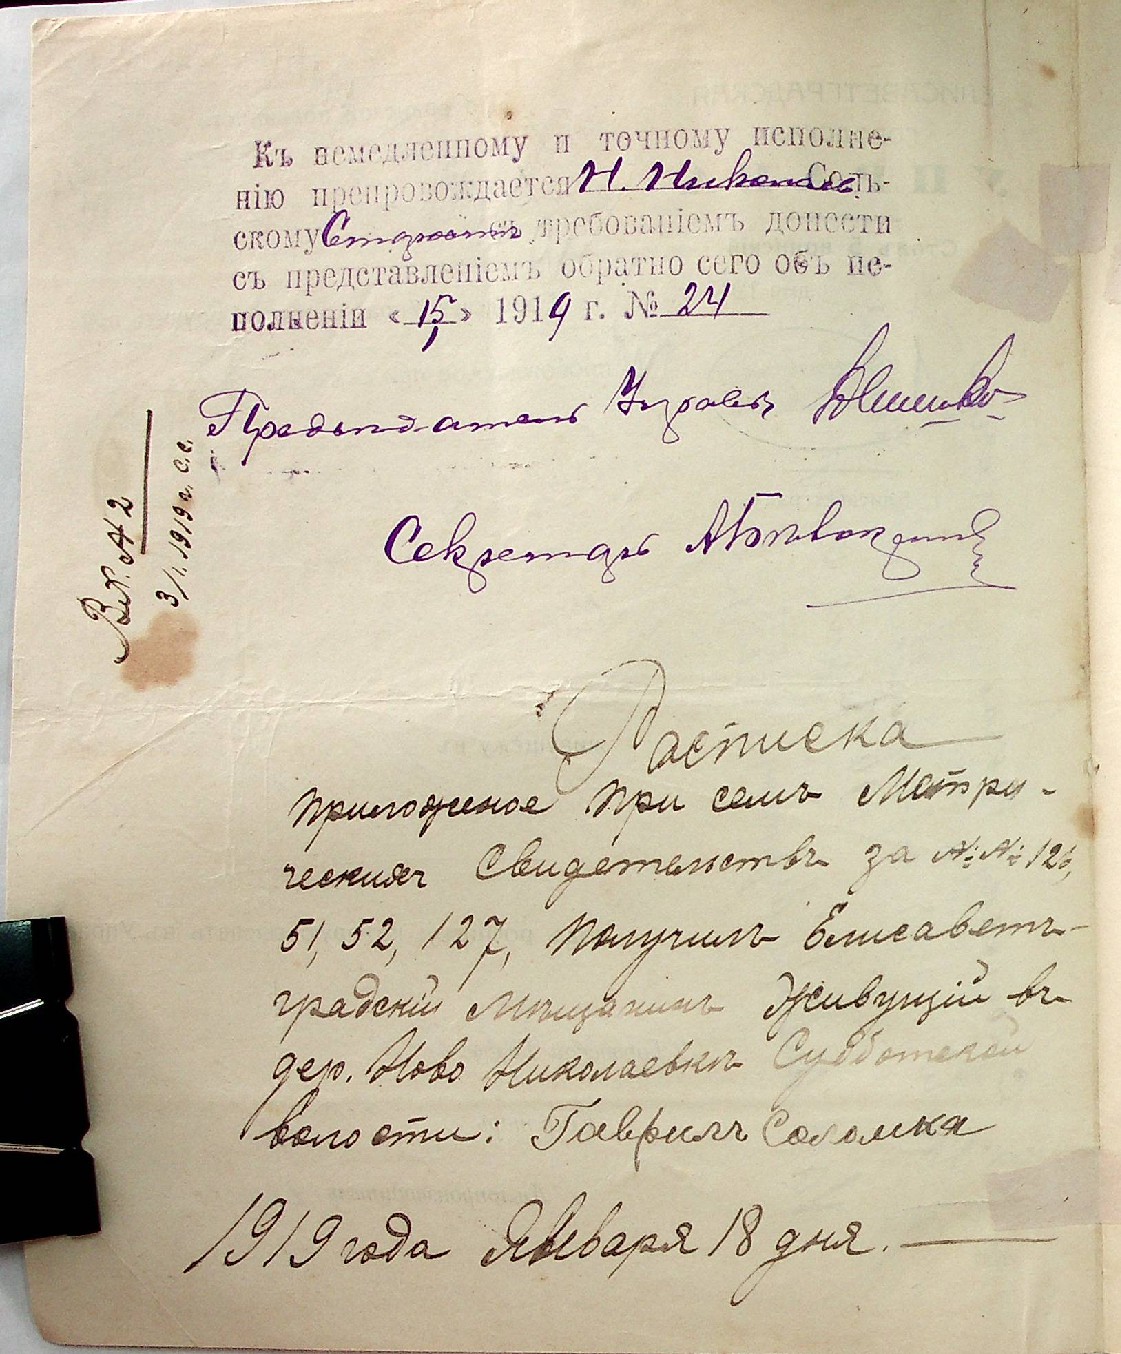 Къ немедленному и точному исполне-
нію препровождается Н. Николаев Сель-
скому Старостѣ съ требованіемъ донести
съ представленіемъ обратно сего объ ис-
полненіи «15/1» 1919 г. № 24
Предсѣдатель Управы
Секретарь
Вх. № 2
3/I 1919 г. с.с.
Расписка
Приложеное при семъ Метри-
ческихъ Свидетельствъ за №№ 126,
51, 52, 127, Получилъ Елисавет-
градскій Мѣщанинъ Живущій въ
дер. Ново Николаевкѣ Субботской
волости: Гаврилъ Соломка
1919 года Января 18 дня.